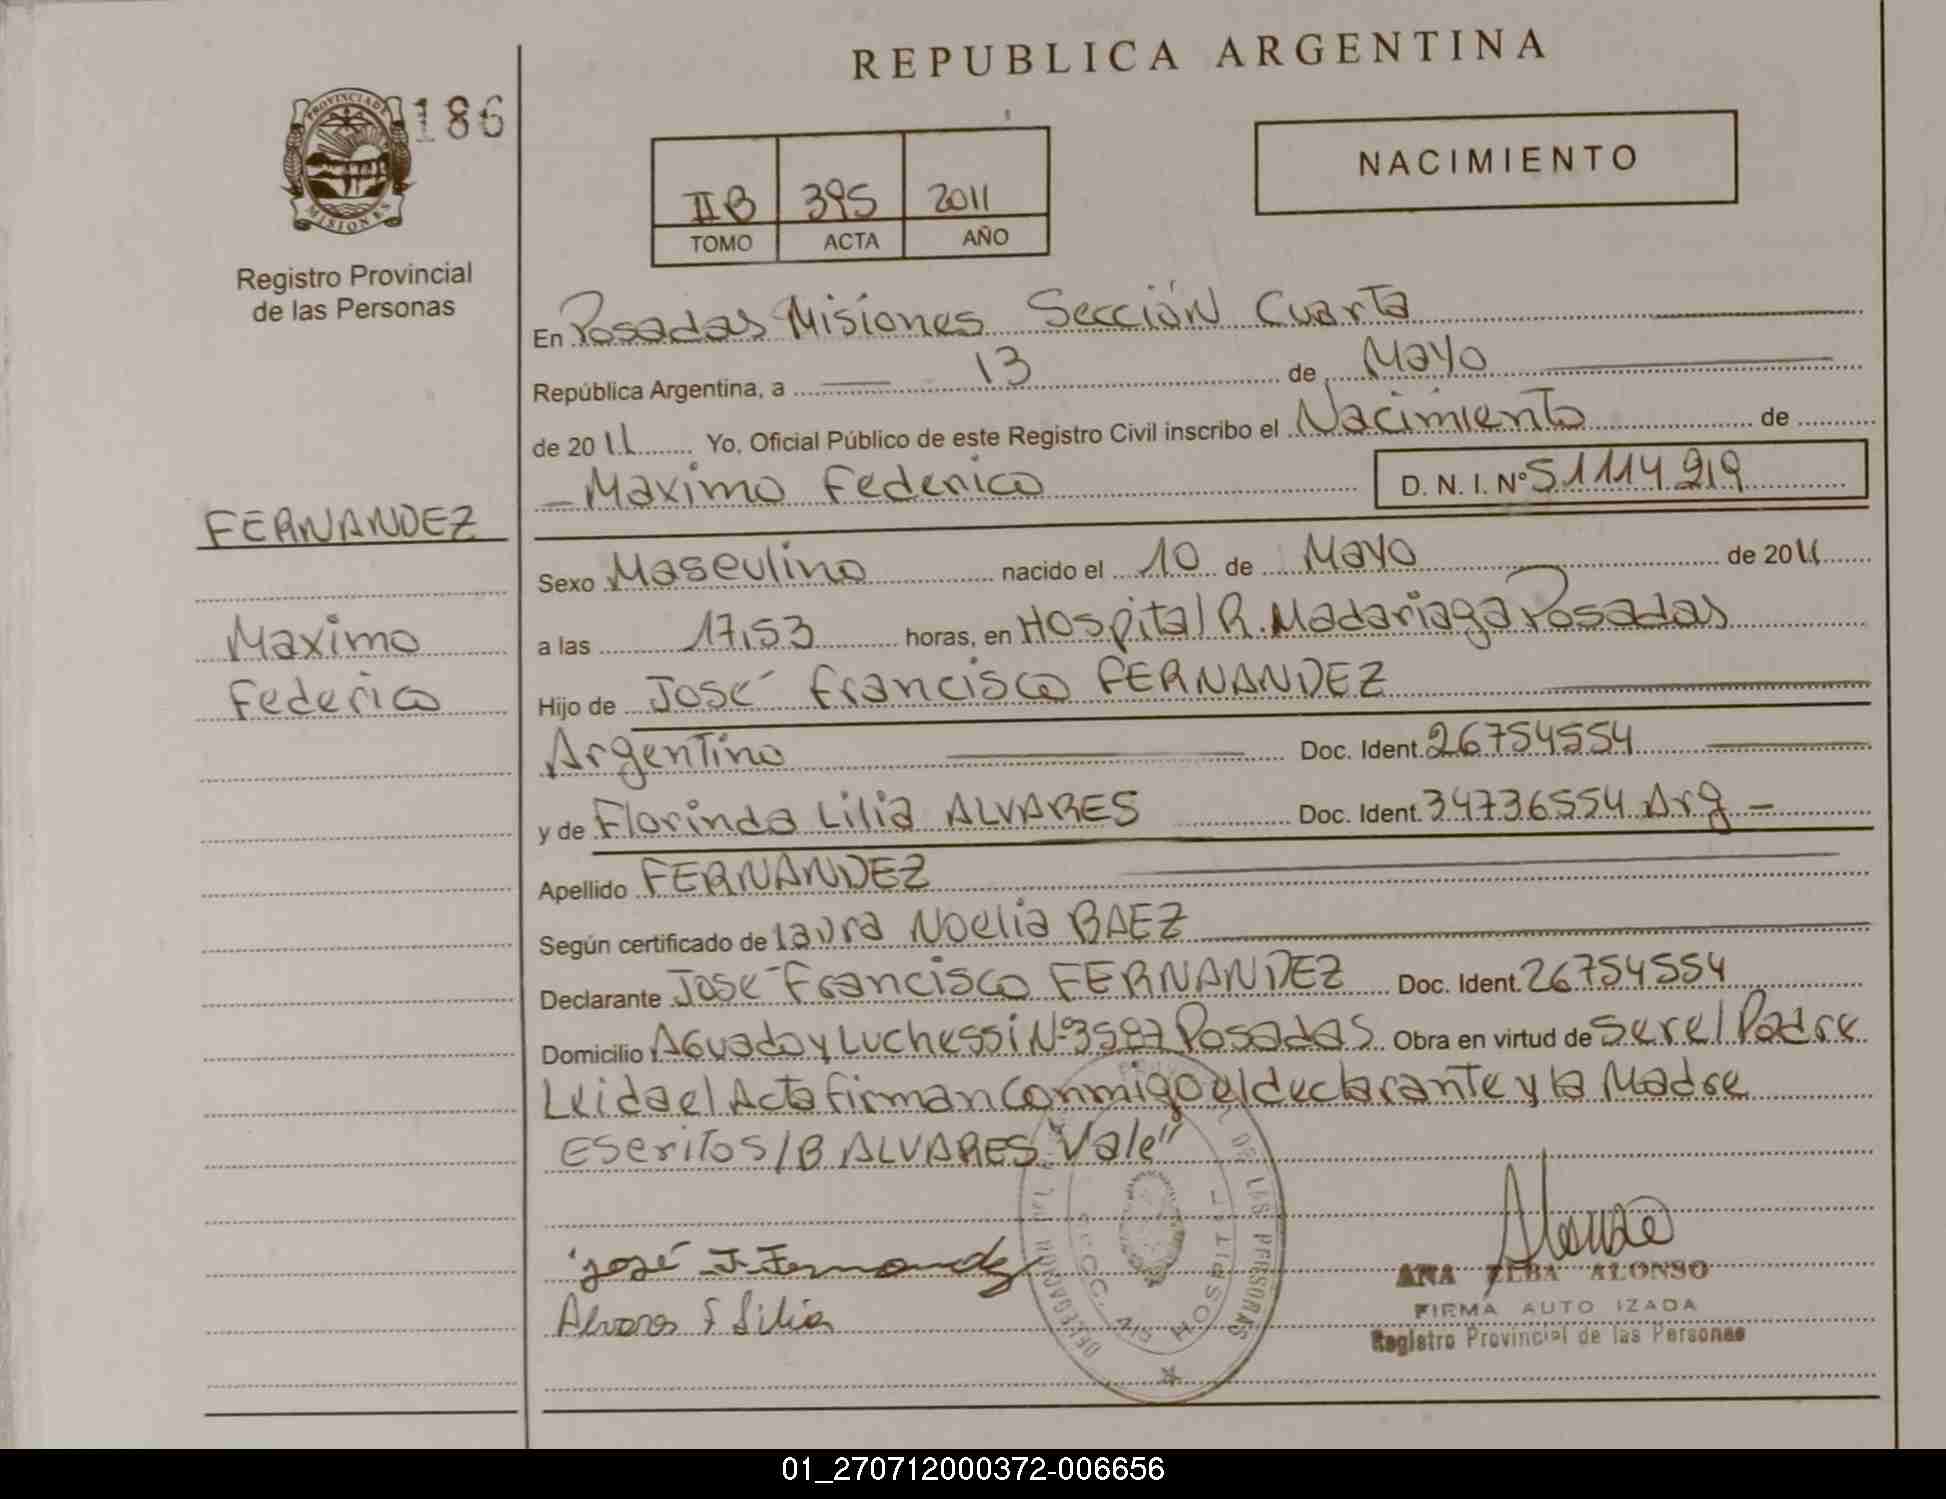 REPUBLICA ARGENTINA
PROVINCIA DE
MISIONES
186
Registro Provincial
de las Personas
II B 395 2011
TOMO ACTA AÑO
NACIMIENTO
En Posadas Misiones Sección Cuarta
República Argentina, a 13 de Mayo
de 2011 Yo, Oficial Público de este Registro Civil inscribo el Nacimiento de
Maximo Federico D. N. I. Nº 51114919
FERNANDEZ
Maximo
Federico
Sexo Masculino nacido el 10 de Mayo de 2011
a las 17,53 horas, en Hospital R. Madariaga Posadas
Hijo de José Francisco FERNANDEZ
Argentino Doc. Ident. 26754554
y de Florinda Lilia ALVARES Doc. Ident. 34736554 Arg –
Apellido FERNANDEZ
Según certificado de Laura Noelia BAEZ
Declarante José Francisco FERNANDEZ Doc. Ident. 26754554
Domicilio Aguado y Luchessi Nº 3587 Posadas Obra en virtud de Ser el Padre
Leida el Acta firman Conmigo el declarante y la Madre
Escritos /B ALVARES Vale"
José F. Fernandez
Alvares F Lilia
DE LAS PERSONAS
HOSPITAL
ANA ELBA ALONSO
FIRMA AUTO IZADA
Registro Provincial de las Personas
01_270712000372-006656